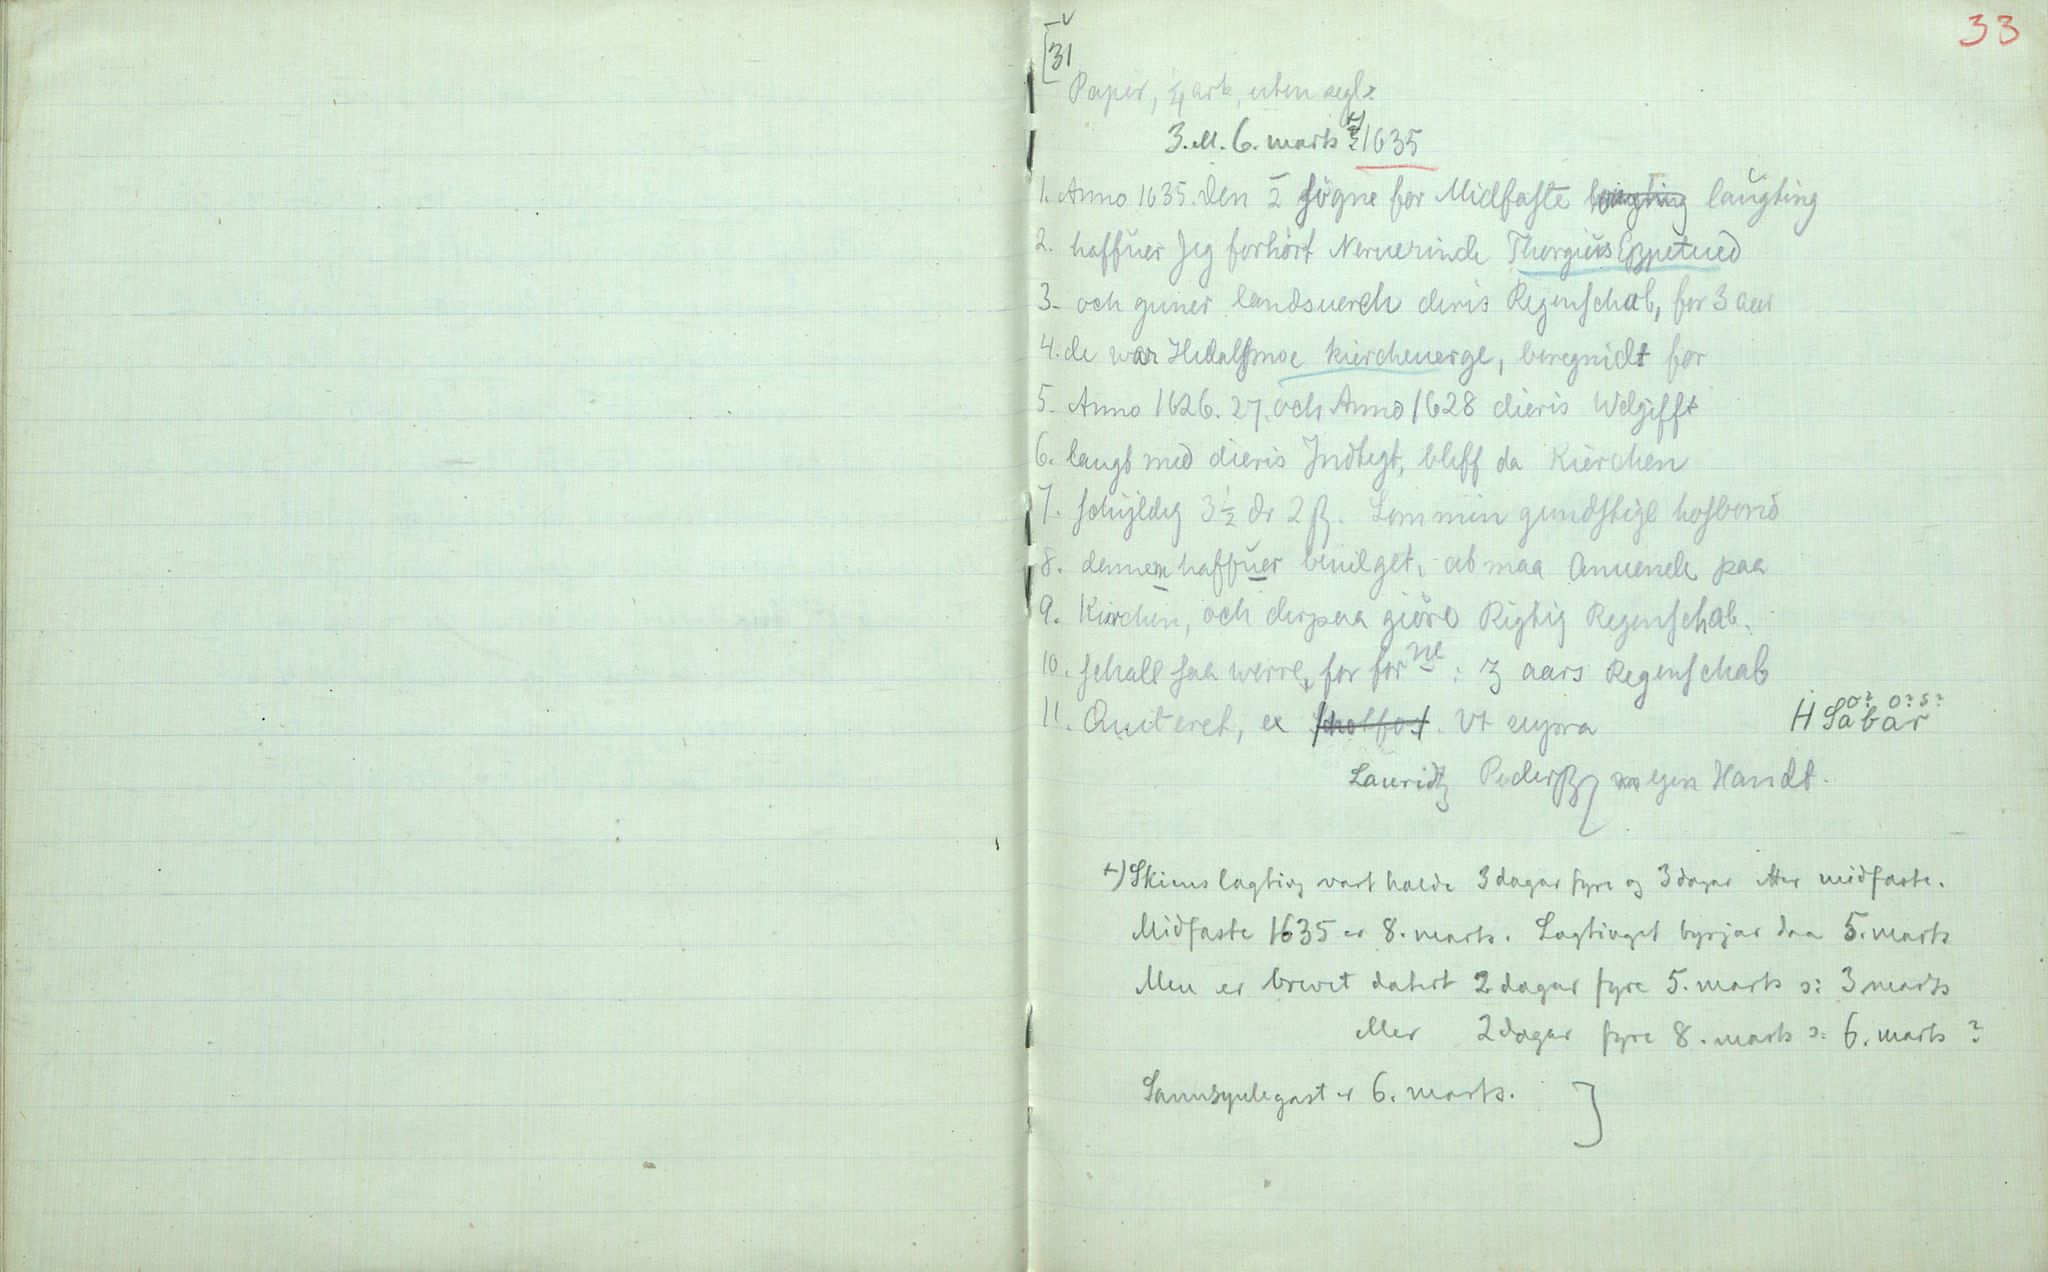 33
31
Papir, 1/4 ark, uten segl.
3. el. 6. marts 1635
1. Anno 1635. den 2 søgne for Midfaste laugting
2. haffuer Jeg forhørt Neruerinde Thorgiuls Eppetued
3. och guner landsuerch deris Regenschab, for 3 aar
4. de war Hedalsmoe kircheuerge, beregnidt for
5. Anno 1626. 27. och Anno 1628 dieris Wdgifft
6. laugt med dieris Jndtegt, bleff da Kierchen
7. schyldig 3 1/2 dr 2 ß. Som min gundstige hosbond
8. dennem haffuer beuilget, at maa Anuende paa
9. Kirchen, och derpaa giøre Rigtig Regenschab.
10. schall saa werre, for forne: 3 aars Regenschab
11. Quiteret, ex Vt supra
H Sabar
Lauridtz Pederß egen Handt.
+) Skiens lagting vart halde 3 dagar fyre og 3 dagar etter midfaste.
Midfaste 1635 er 8. marts. Lagtinget byrjar daa 5. marts
Men er brevet datert 2 dagar fyre 5. marts ɔ: 3 marts
eller 2 dagar fyre 8. marts ɔ: 6. marts?
Sannsynlegast er 6. marts.